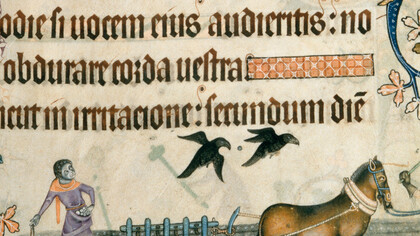 odie si uocem eius audieritis : no
obdurare corda uestra
icut in irritacione : secundum diē